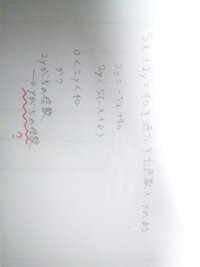 5x+2y=40を満たす自然数x,yの組
2y=-5x+40
2y=5(-x+8)
0<2y<40
かつ
2yが5の倍数
→yが5の倍数
?